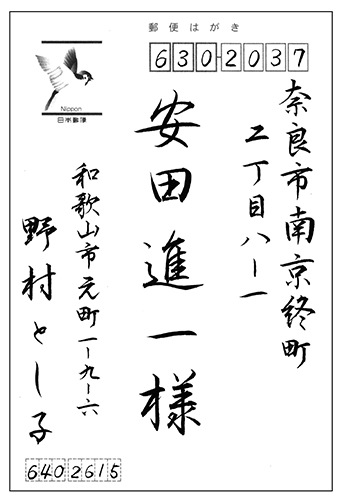 郵便はがき
630-2037
Nippon
日本郵便
奈良市南京終町
二丁目八ー一
安田進一様
和歌山市元町一ー九ー六
野村とし子
6402615